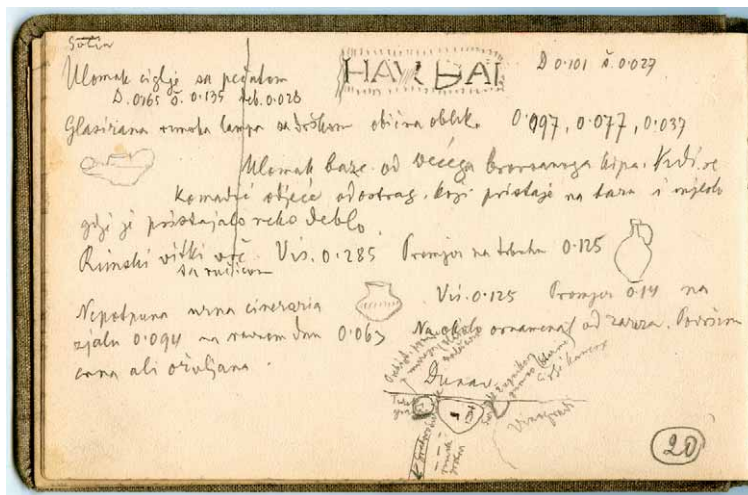 Sotin
Ulomak ciglje sa pečatom HAVBAI D 0·101 š. 0·027
D. 0·165 š. 0·135 deb. 0·028
Glazirana rimska lampa sa drškom obična oblika 0·097, 0·077, 0·037
Ulomak baze od većega bronsanoga kipa. Vidi se
komadić odjeće odostrag, koji pristaje na bazu i mjesto
gdje je pristajalo neko deblo.
Rimski vitki vrč Vis. 0·285 Promjer na trbuhu 0·125
sa ručicom
Nepotpuna urna cineraria Vis. 0·125 Promjer 0·14 na
zjalu 0·094 na ravnom dnu 0·063 Naokolo ornamenat od zareza. Površina
crna ali oguljena.
Dunav
Vinogradi
20